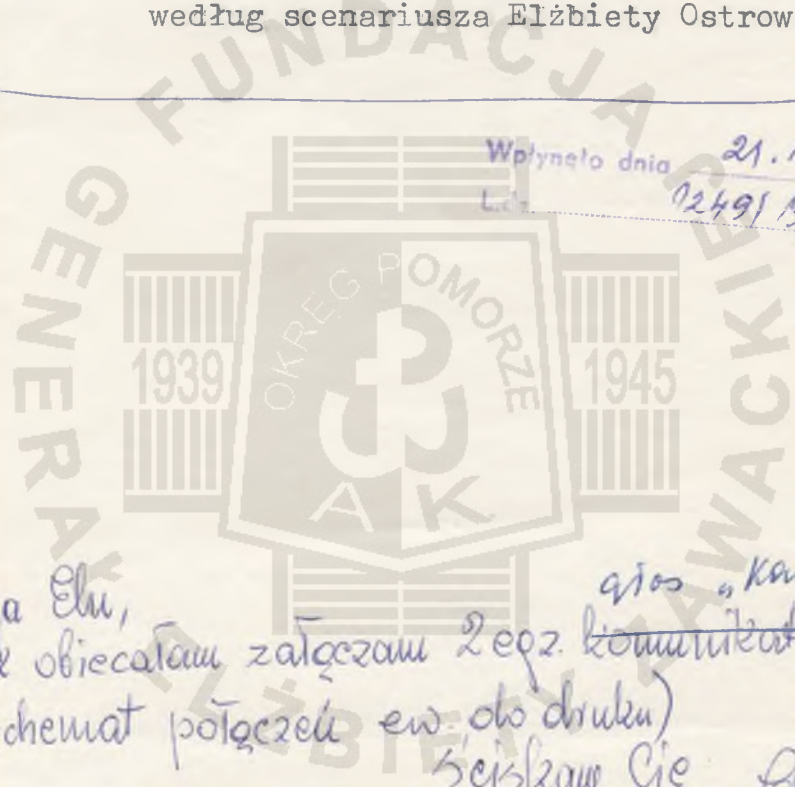 według scenariusza Elżbiety Ostrow
Wpłynęło dnia 21.
L.dz. 1249/
FUNDACJA
GENERAŁ
ELŻBIETY
ZAWACKIEJ
OKRĘG POMORZE
1939
1945
AK
a Elu,
głos "
obiecałam załączam 2 egz. komunikat
chemat połączeń ew. do druku)
Ściskam Cię